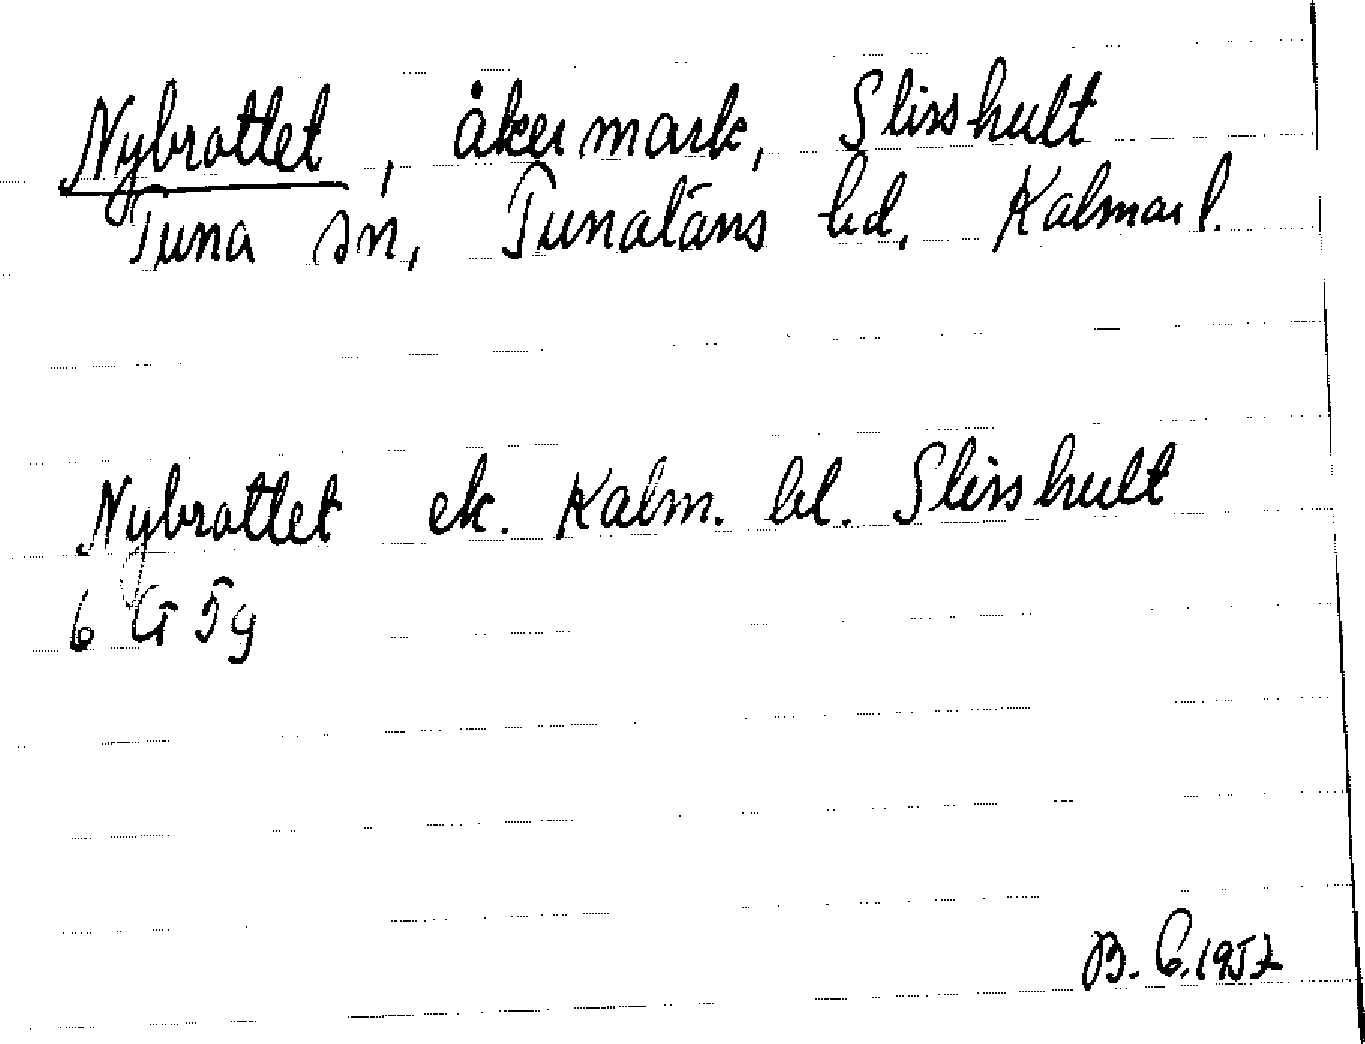 Nybrottet, åkermark, Slisshult
Tuna sn, Tunaläns hd, Kalmar l.
Nybrottet ek. Kalm. bl. Slisshult
6 GI 5g
B. G. 1957